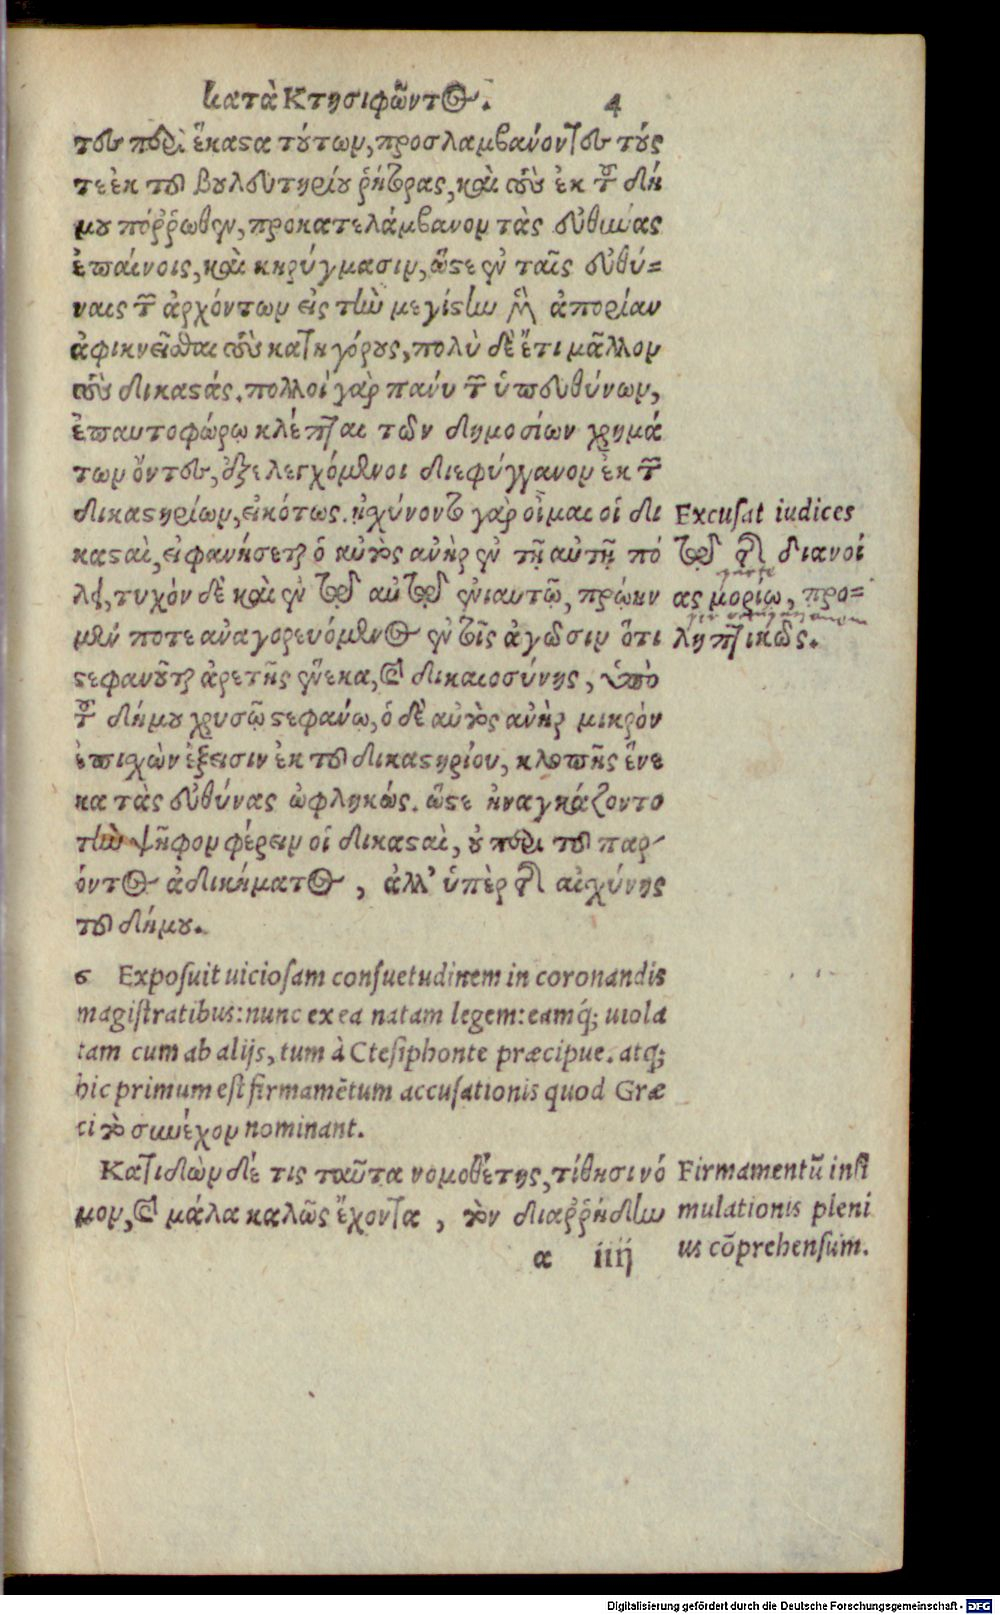 κατὰ Κτησιφῶντος. 4
τες περὶ ἕκαστα τούτων, προσλαμβάνοντες τούς
τε ἐκ τοῦ βουλευτηρίου ῥήτορας, καὶ τοὺς ἐκ τοῦ δή
μου πόῤῥωθεν, προκατελάμβανον τὰς εὐθύνας
ἐπαίνοις, καὶ κηρύγμασιν, ὥστε ἐν ταῖς εὐθύ-
ναις τῶν ἀρχόντων εἰς τὴν μεγίστην μὲν ἀπορίαν
ἀφικνεῖσθαι τοὺς κατηγόρους, πολὺ δὲ ἔτι μᾶλλον
τοὺς δικαστάς. πολλοὶ γὰρ πάνυ τῶν ὑπευθύνων,
ἐπαυτοφώρῳ κλέπται τῶν δημοσίων χρημά
των ὄντες, ἐξελεγχόμενοι διεφύγγανον ἐκ τῶν
δικαστηρίων, εἰκότως. ᾐσχύνοντο γὰρ οἶμαι οἱ δι
κασταὶ, εἰ φανήσεται ὁ αὐτὸς ἀνὴρ ἐν τῇ αὐτῇ πό
λει, τυχὸν δὲ καὶ ἐν τῷ αὐτῷ ἐνιαυτῷ, πρώην
μέν ποτε ἀναγορευόμενος ἐν τοῖς ἀγῶσιν ὅτι
στεφανοῦται ἀρετῆς ἕνεκα, καὶ δικαιοσύνης, ὑπὸ
τοῦ δήμου χρυσῷ στεφάνῳ, ὁ δὲ αὐτὸς ἀνὴρ μικρὸν
ἐπισχὼν ἔξεισιν ἐκ τοῦ δικαστηρίου, κλοπῆς ἕνε
κα τὰς εὐθύνας ὠφληκώς. ὥστε ἠναγκάζοντο
τὴν ψῆφον φέρειν οἱ δικασταὶ, οὐ περὶ τοῦ παρ
όντος ἀδικήματος, ἀλλ' ὑπὲρ τῆς αἰσχύνης
τοῦ δήμου.
Excusat iudices
τῷ τῆς διανοί
ας μορίῳ, προ-
ληπτικῶς.
6 Exposuit uiciosam consuetudinem in coronandis
magistratibus: nunc ex ea natam legem: eamq́; uiola
tam cum ab alijs, tum à Ctesiphonte præcipue. atq;
hic primum est firmamẽtum accusationis quod Græ
ci τὸ συνέχον nominant.
Κατιδὼν δέ τις ταῦτα νομοθέτης, τίθησι νό
μον, καὶ μάλα καλῶς ἔχοντα, τὸν διαῤῥήδην
Firmamentũ insi
mulationis pleni
us cõprehensum.
a iiij
Digitalisierung gefördert durch die Deutsche Forschungsgemeinschaft - DFG